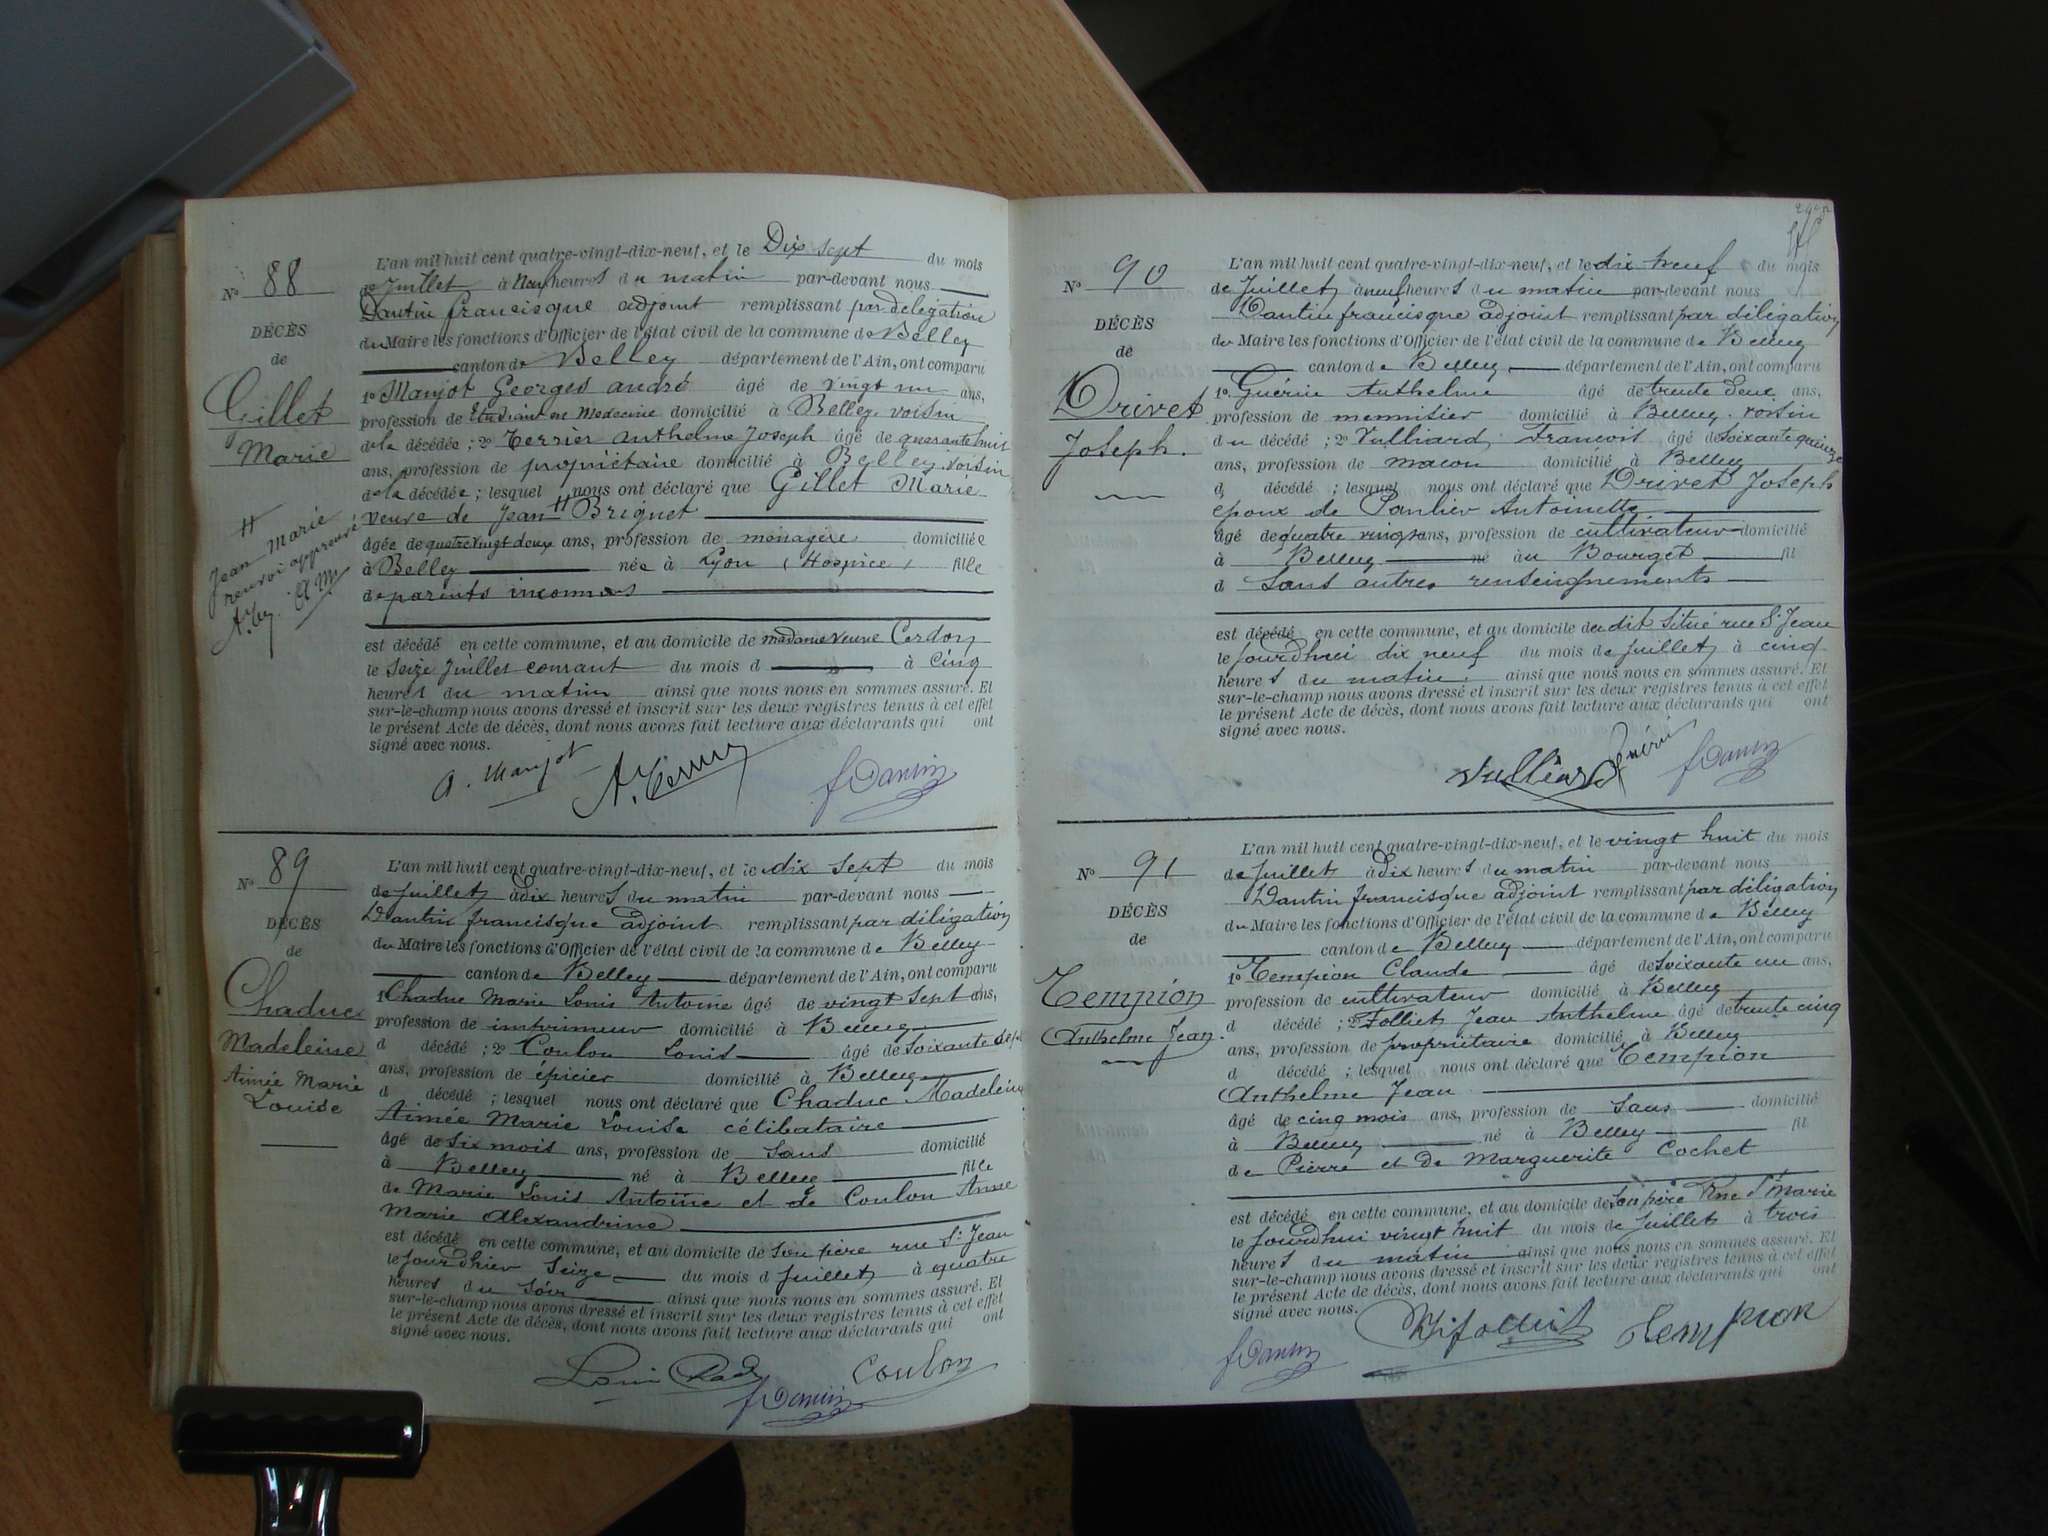 N° 88
DÉCÈS
de
Gillet
Marie
L'an mil huit cent quatre-vingt-dix-neuf, et le Dix sept du mois
de juillet à Neuf heures du matin par-devant nous
Dantin francisque adjoint remplissant par délégation
du Maire les fonctions d'Officier de l'état civil de la commune de Belley
canton de Belley département de l'Ain, ont comparu
1° Manjot Georges andré âgé de vingt un ans,
profession de Etudiant en Medecine domicilié à Belley. voisin
de la décédée ; 2° Terrier Anthelme Joseph âgé de quarante huit
ans, profession de propriétaire domicilié à Belley. voisin
de la décédée ; lesquel nous ont déclaré que Gillet Marie
veuve de Jean # Briguet
âgée de quatre vingt deux ans, profession de ménagère domiciliée
à Belley née à Lyon (Hospice) fille
de parents inconnus
# Jean Marie
renvoi approuvé
est décédé en cette commune, et au domicile de madame veuve Cerdon
le Seize juillet courant du mois d à Cinq
heures du matin ainsi que nous nous en sommes assuré. Et
sur-le-champ nous avons dressé et inscrit sur les deux registres tenus à cet effet
le présent Acte de décès, dont nous avons fait lecture aux déclarants qui ont
signé avec nous.
G. Manjot A. Terrier f Dantin
N° 89
DÉCÈS
de
Chaduc
Madeleine
Aimée Marie
Louise
L'an mil huit cent quatre-vingt-dix-neuf, et le dix sept du mois
de juillet à dix heures du matin par-devant nous
Dantin francisque adjoint remplissant par délégation
du Maire les fonctions d'Officier de l'état civil de la commune de Belley
canton de Belley département de l'Ain, ont comparu
1° Chaduc Marie Louis Antoine âgé de vingt sept ans,
profession de imprimeur domicilié à Belley
d décédé ; 2° Coulon Louis âgé de Soixante sept
ans, profession de épicier domicilié à Belley
d décédé ; lesquel nous ont déclaré que Chaduc Madeleine
Aimée Marie Louise célibataire
âgé de Six mois ans, profession de Sans domicilié
à Belley né à Belley fille
de Marie Louis Antoine et de Coulon Anne
Marie Alexandrine
est décédé en cette commune, et au domicile de Son père rue St Jean
le jour d'hier Seize du mois d juillet à quatre
heures du Soir ainsi que nous nous en sommes assuré. Et
sur-le-champ nous avons dressé et inscrit sur les deux registres tenus à cet effet
le présent Acte de décès, dont nous avons fait lecture aux déclarants qui ont
signé avec nous.
Coulon
f Dantin
N° 90
DÉCÈS
de
Drivet
Joseph.
L'an mil huit cent quatre-vingt-dix-neuf, et le dix neuf du mois
de Juillet à neuf heures du matin par-devant nous
Dantin francisque adjoint remplissant par délégation
du Maire les fonctions d'Officier de l'état civil de la commune de Belley
canton de Belley département de l'Ain, ont comparu
1° Guérin Anthelme âgé de trente deux ans,
profession de menuisier domicilié à Belley. voisin
du décédé ; 2° Vulliard François âgé de Soixante quinze
ans, profession de macon domicilié à Belley
d décédé ; lesquel nous ont déclaré que Drivet Joseph
epoux de Antoinette
âgé de quatre vingts ans, profession de cultivateur domicilié
à Belley né au Bourget fil
d Sans autres renseignements
est décédé en cette commune, et au domicile du dit Situé rue St Jean
le jourd'hui dix neuf du mois de juillet à cinq
heures du matin. ainsi que nous nous en sommes assuré. Et
sur-le-champ nous avons dressé et inscrit sur les deux registres tenus à cet effet
le présent Acte de décès, dont nous avons fait lecture aux déclarants qui ont
signé avec nous.
Vulliard Guérin f Dantin
N° 91
DÉCÈS
de
Tempion
Anthelme Jean.
L'an mil huit cent quatre-vingt-dix-neuf, et le vingt huit du mois
de juillet à dix heures du matin par-devant nous
Dantin francisque adjoint remplissant par délégation
du Maire les fonctions d'Officier de l'état civil de la commune de Belley
canton de Belley département de l'Ain, ont comparu
1° Tempion Claude âgé de Soixante un ans,
profession de cultivateur domicilié à Belley
d décédé ; 2° Folliet Jean Anthelme âgé de trente cinq
ans, profession de propriétaire domicilié à Belley
d décédé ; lesquel nous ont déclaré que Tempion
Anthelme Jean
âgé de cinq mois ans, profession de Sans domicilié
à Belley né à Belley fil
de Pierre et de Marguerite Cochet
est décédé en cette commune, et au domicile de Son père Rue Ste Marie
le jourd'hui vingt huit du mois de juillet à trois
heures du matin ainsi que nous nous en sommes assuré. Et
sur-le-champ nous avons dressé et inscrit sur les deux registres tenus à cet effet
le présent Acte de décès, dont nous avons fait lecture aux déclarants qui ont
signé avec nous.
f Dantin Tempion